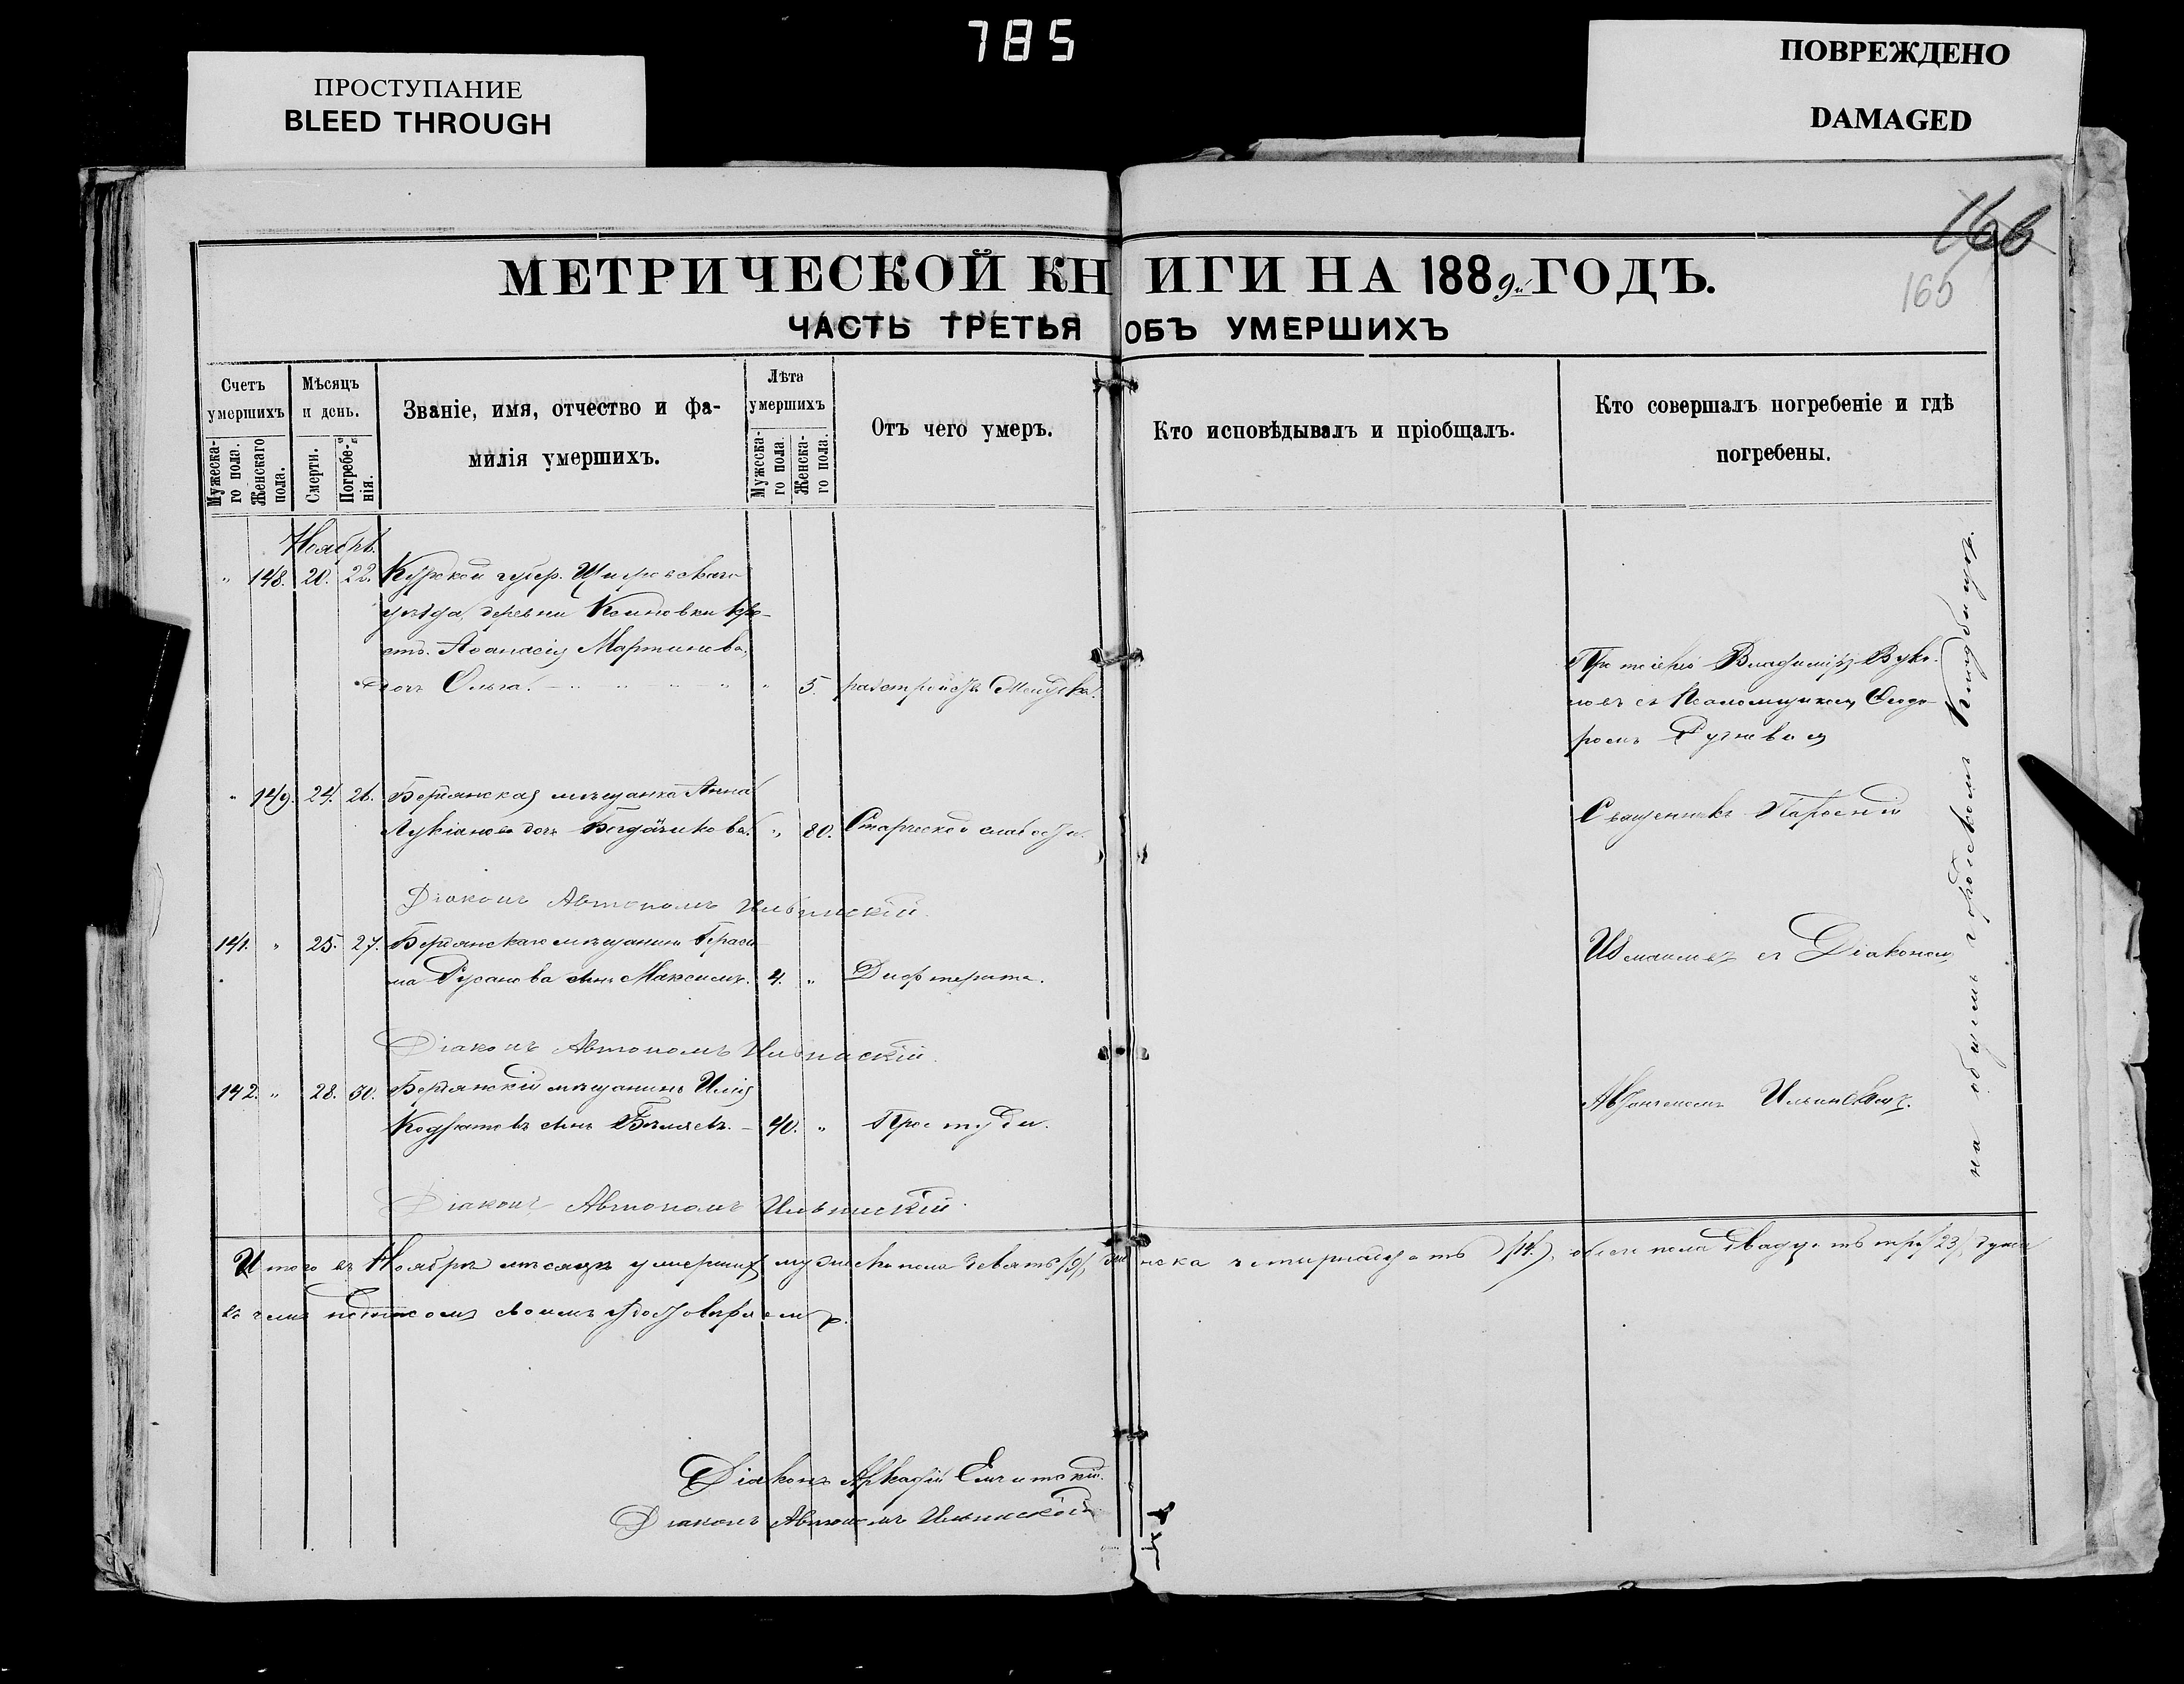 785
ПРОСТУПАНИЕ
BLEED THROUGH
ПОВРЕЖДЕНО
DAMAGED
166
165
МЕТРИЧЕСКОЙ КНИГИ НА 1889й ГОДЪ.
ЧАСТЬ ТРЕТЬЯ ОБЪ УМЕРШИХЪ
Счетъ умершихъ
Мужеска-го пола.
Женскаго пола.
Мѣсяцъ и день.
Смерти.
Погребе-нія.
Званіе, имя, отчество и фа-
милія умершихъ.
Лѣта умершихъ
Мужеска-го пола.
Женска-го пола.
Отъ чего умеръ.
Кто исповѣдывалъ и пріобщалъ.
Кто совершалъ погребеніе и гдѣ
погребены.
Ноябрь.
" 148. 20. 22. Курской губер. Щигровскаго
уѣзда, деревни кре-
ст. Аѳанасія Мартинова,
дочь Ольга. " 5. разстройств. Желудка.
Протоіерей Владиміръ
новъ съ Псаломщикомъ Ѳеодо-
ромъ
" 149. 24. 26. Бердянская мѣщанка Анна
Лукіанова дочь " 80. Старческой слабости.
Священникъ
Діаконъ Автономъ Ильинскій.
141. " 25. 27. Бердянскаго мѣщанина Гераси-
ма Русанова сынъ Максимъ. 4. " Дифтерита.
съ Діакономъ
Діаконъ Автономъ Ильинскій.
142. " 28. 30. Бердянскій мѣщанинъ Илія
Кодратовъ сынъ Бѣляевъ. 40. " Простуды.
Автономомъ Ильинскимъ.
Діаконъ Автономъ Ильинскій.
на общемъ городскомъ кладбищѣ.
Итого въ Ноябрѣ мѣсяцѣ умершихъ мужеска пола девять /9/, женска четырнадцать /14/, обоего пола двадцать три /23/ души
въ чемъ подписомъ своимъ удостовѣряемъ.
Діаконъ Аркадій
Діаконъ Автономъ Ильинскій